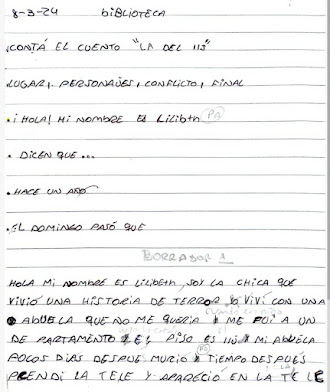 8-3-24 biBLiOTECA
.CONTÁ EL CUENTO "LA DEL 113"
.LUGAR, PERSONAJES, CONFLICTO, FINAL
.¡HOLA! Mi NOMBRE ES LiLiBEtH PA
. DiCEN QUE...
. HACE UN AÑO
.EL DOMINGO PASÓ QUE
BORRADOR 1
HOLA Mi NOMBRE ES LiLiBEtH, SOY LA CHiCA QUE
ViViO UNA HiSTORiA DE TERROR ViVÍ CON UNA
ABUELA QUE NO ME QUERiA ME FUi A UN
DE PARTAMENTO EL PiSO ES Mi ABUELA
POCOS DiAS DESPUE MURiÓ TiEMPO DESPUÉS
PRENDi LA TELE Y APARECiÓ EN LA TELE